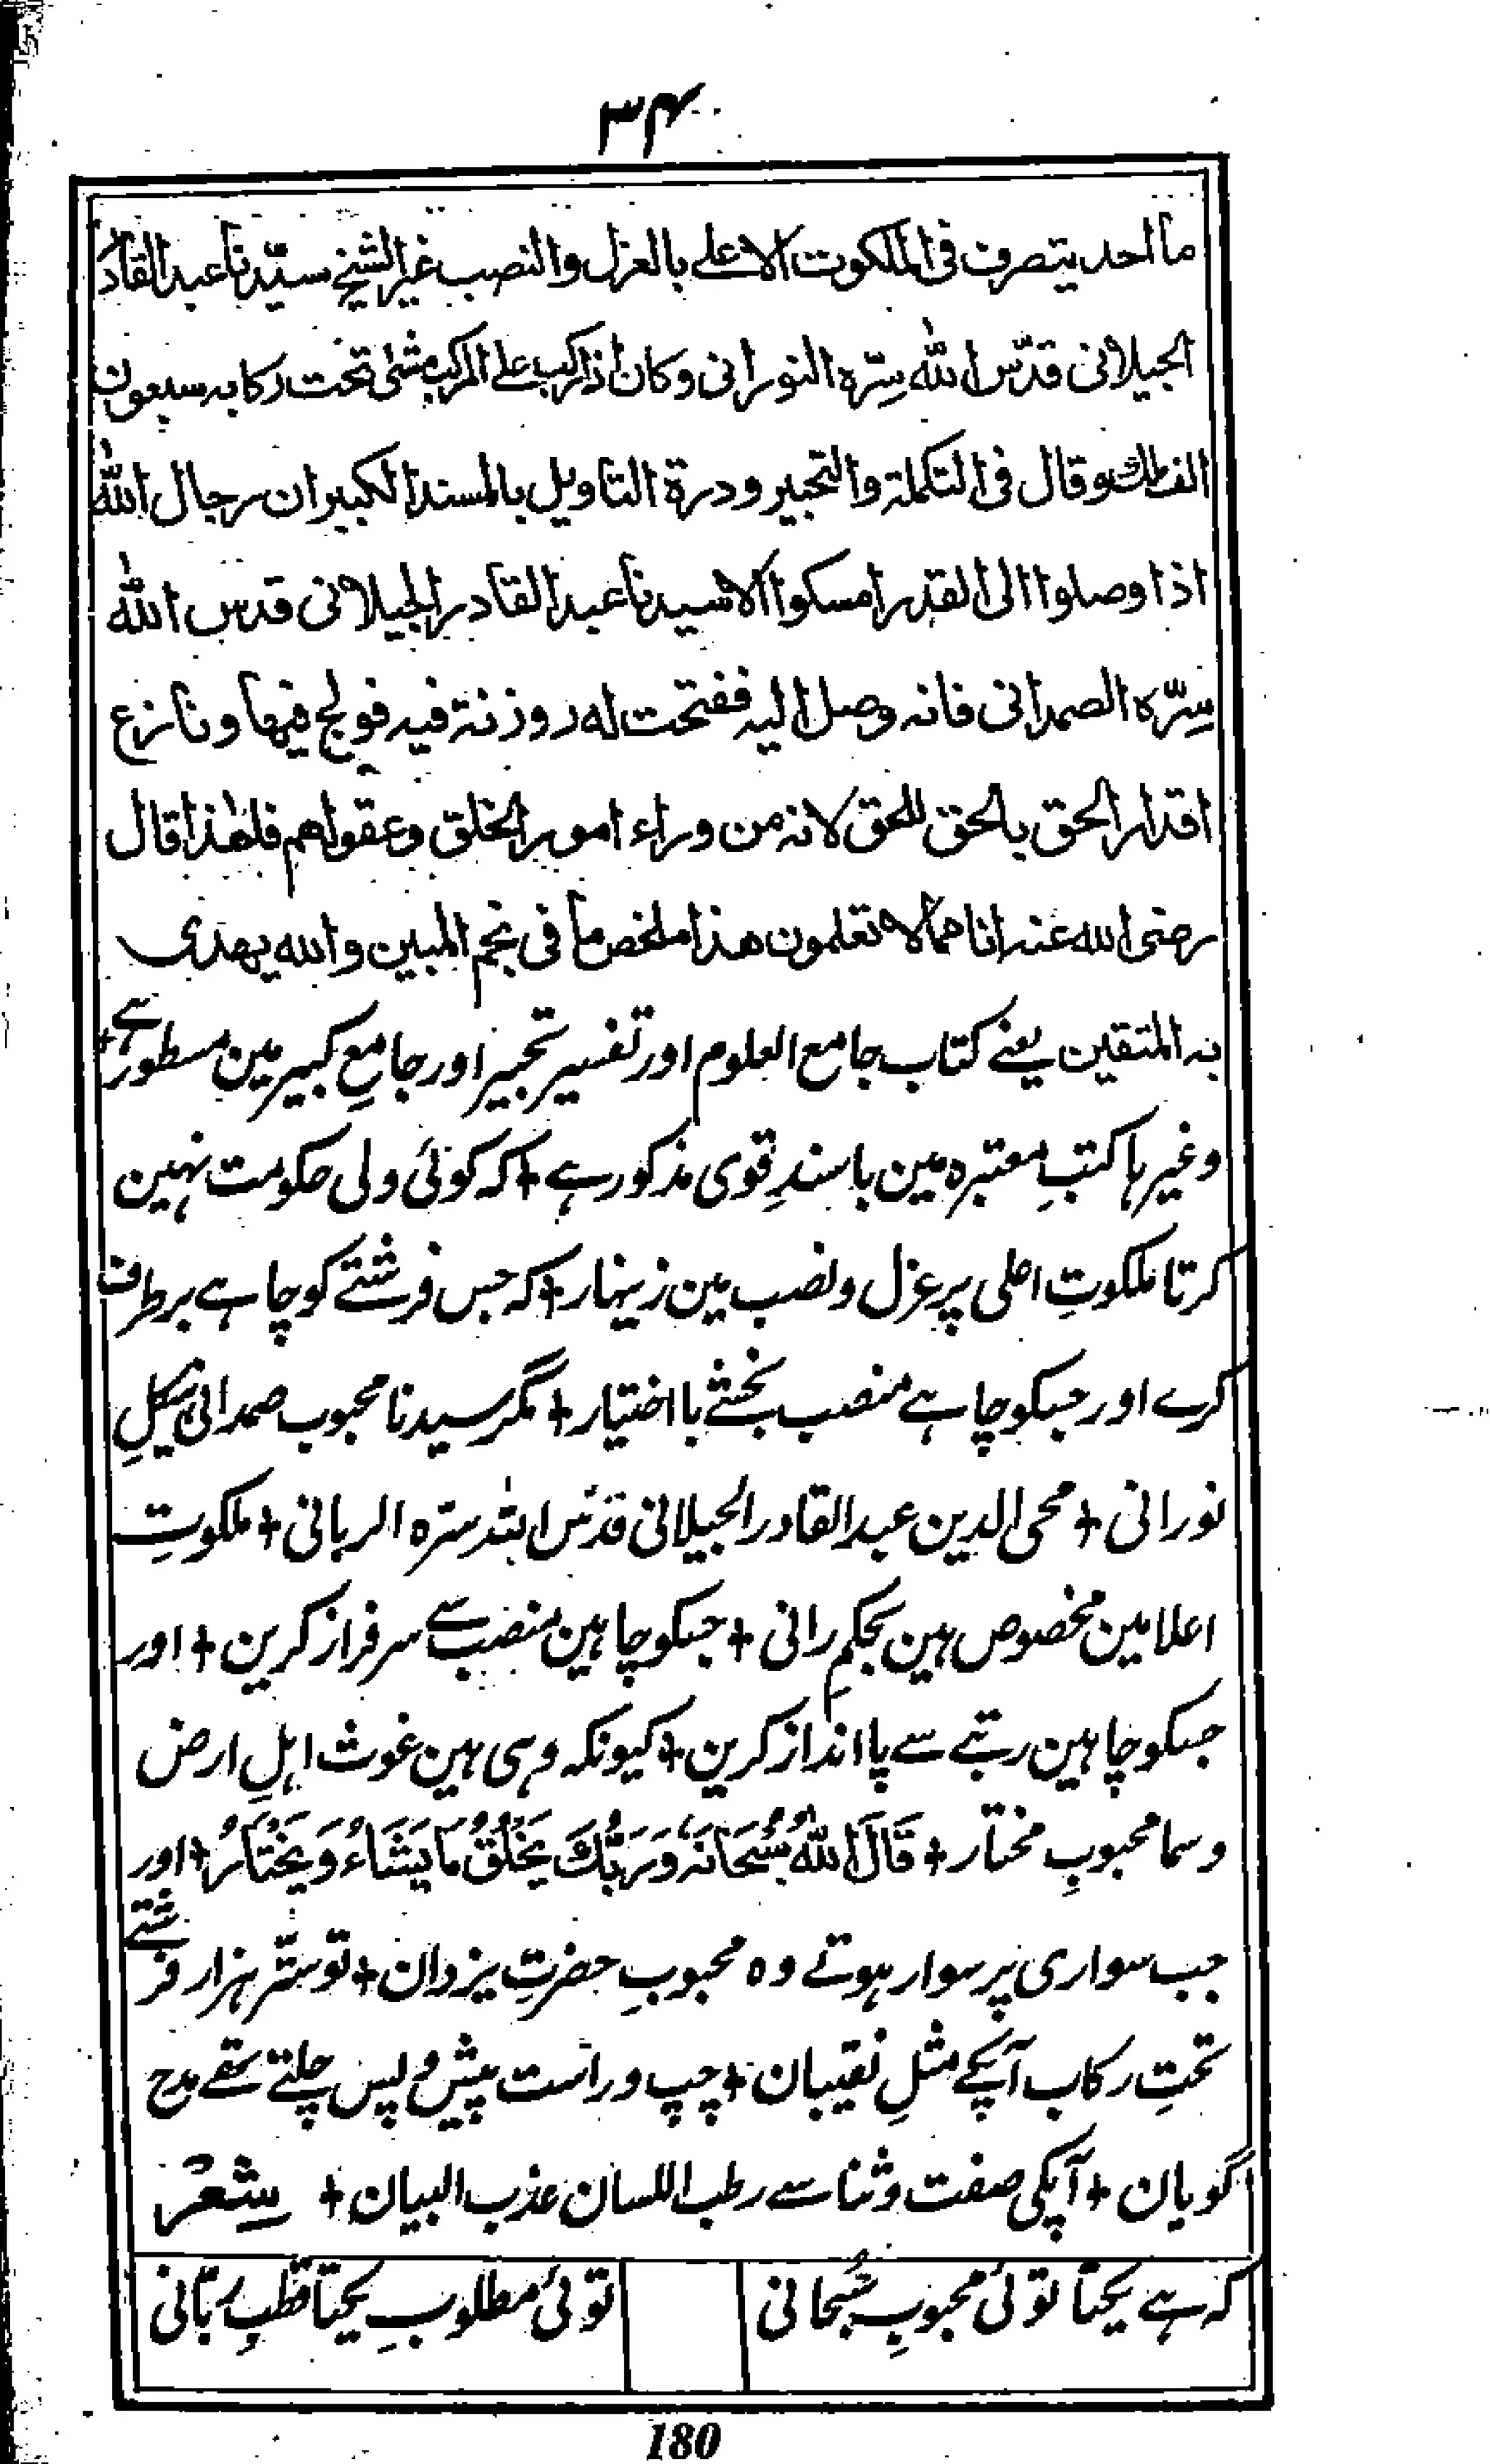 ۳۴
ما احد يتصرف فى الملكوت الاعلے بالعزل والنصب غير الشيخ سيّدنا عبد القادر
الجيلانى قدّس الله سرّه النورانى وكان اذا ركب على المركب مشى تحت ركابه سبعون
الف ملك وقال فى التكملة والتحبير ودرة التاويل بالمسند الكبير ان رجال الله
اذا وصلوا الى القدر امسكوا الا سيدنا عبد القادر الجيلانى قدس الله
سرّه الصمدانى فانه وصل اليه ففتحت له روزنة فيه فولج فيها ونازع
اقدار الحق بالحق للحق لانه من وراء امور الخلق وعقولهم فلهذا قال
رضى الله عنه انا مما لا تعلمون هذا ملخص ما فى نجم المبين والله يهدى
به المتقين یعنے کتاب جامع العلوم اور تفسیر تحبیر اور جامعِ کبیر مین مسطور ہے +
وغیرہا کتبِ معتبرہ مین باسندِ قوی مذکور ہے + کہ کوئی ولی حکومت نہین
کرتا ملکوتِ اعلی پر عزل ونصب مین زینہار + کہ جس فرشتے کو چاہے برطرف
کرے اور جسکو چاہے منصب بخشے با اختیار + مگر سیدنا محبوب صمدانی ہیکلِ
نورانی + محی الدین عبدالقادر الجیلانی قدّس اللہ سرّہ الربانی + ملکوتِ
اعلا مین مخصوص ہین بحکمِ رانی + جسکو چاہین منصب سے سرفراز کرین + اور
جسکو چاہین رتبے سے پا انداز کرین + کیونکہ وہی ہین غوث اہلِ ارض
وسما محبوبِ مختار + قَالَ اللهُ سُبْحَانَهٗ وَرَبُّكَ يَخْلُقُ مَا يَشَاءُ وَيَخْتَارُ + اور
جب سواری پر سوار ہوتے وہ محبوبِ حضرتِ یزدان + تو ستّر ہزار فرشتے
تحتِ رکاب آپکے مثلِ نقیبان + چپ وراست پیش و پس چلتے تھے مدح
گویان + آپکی صفت وثنا سے رطب اللسان عذب البیان + شعر
کہ ہے یحیا توئی محبوبِ سُبحانی توئی مطلوبِ یحیا قطبِ ربّانی
180